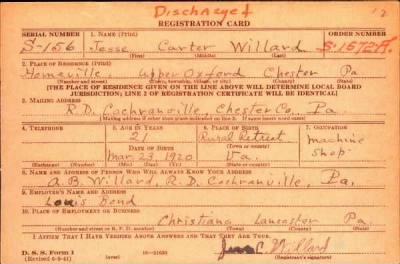 Discharged
12
REGISTRATION CARD
SERIAL NUMBER 1. NAME (Print) ORDER NUMBER
S-156 Jesse Carter Willard S-1572A.
(First) (Middle) (Last)
2. PLACE OF RESIDENCE (Print)
Homeville, Upper Oxford Chester Pa
(Number and street) (Town, township, village, or city) (County) (State)
[THE PLACE OF RESIDENCE GIVEN ON THE LINE ABOVE WILL DETERMINE LOCAL BOARD
JURISDICTION; LINE 2 OF REGISTRATION CERTIFICATE WILL BE IDENTICAL]
3. MAILING ADDRESS
R.D. Cochranville, Chester Co, Pa.
[Mailing address if other than place indicated on line 2. If same insert word same]
4. TELEPHONE 5. AGE IN YEARS 6. PLACE OF BIRTH 7. OCCUPATION
21 Rural Retreat machine
DATE OF BIRTH (Town or county) shop
Mar. 23, 1920 Va.
(Exchange) (Number) (Mo.) (Day) (Yr.) (State or country)
8. NAME AND ADDRESS OF PERSON WHO WILL ALWAYS KNOW YOUR ADDRESS
A.B. Willard, R.D. Cochranville, Pa,
9. EMPLOYER'S NAME AND ADDRESS
Louis Bond
10. PLACE OF EMPLOYMENT OR BUSINESS
Christiana Lancaster Pa.
(Number and street or R. F. D. number) (Town) (County) (State)
I AFFIRM THAT I HAVE VERIFIED ABOVE ANSWERS AND THAT THEY ARE TRUE.
D. S. S. Form 1 Willard
(Revised 6-9-41) (Registrant's signature)